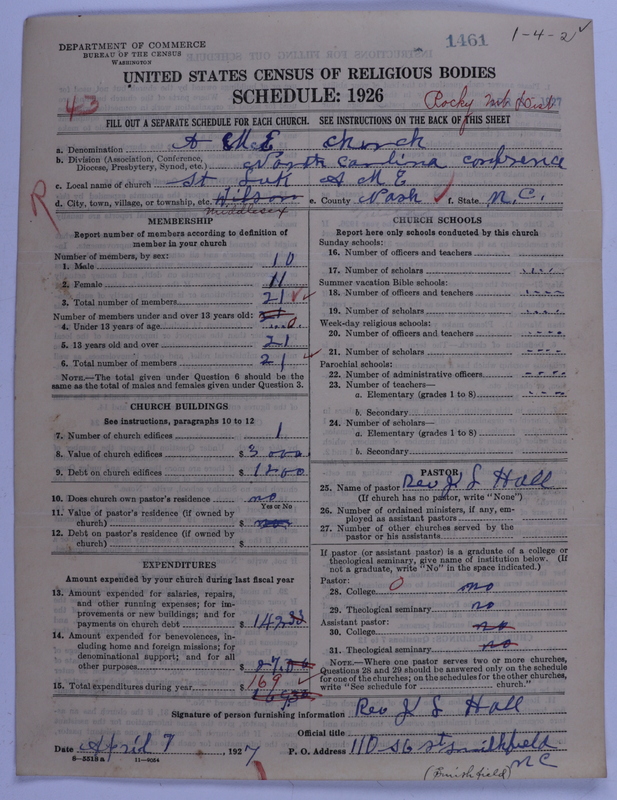 DEPARTMENT OF COMMERCE
BUREAU OF THE CENSUS
WASHINGTON
1461
1-4-2 ✓
UNITED STATES CENSUS OF RELIGIOUS BODIES
SCHEDULE: 1926
43
Rocky Mt Dist
FILL OUT A SEPARATE SCHEDULE FOR EACH CHURCH. SEE INSTRUCTIONS ON THE BACK OF THIS SHEET
a. Denomination A M E Church
b. Division (Association, Conference, Diocese, Presbytery, Synod, etc.) North Carolina Conference
c. Local name of church St A M E
R
d. City, town, village, or township, etc. Wilson e. County Nash ✓ f. State N.C.
Middlesex
MEMBERSHIP
Report number of members according to definition of member in your church
Number of members, by sex:
1. Male 10
2. Female 11
3. Total number of members 21 ✓
Number of members under and over 13 years old:
4. Under 13 years of age 0
5. 13 years old and over 21
6. Total number of members 21 ✓
NOTE.—The total given under Question 6 should be the same as the total of males and females given under Question 3.
CHURCH BUILDINGS
See instructions, paragraphs 10 to 12
7. Number of church edifices 1
8. Value of church edifices $3000
9. Debt on church edifices $1200
10. Does church own pastor's residence no
Yes or No
11. Value of pastor's residence (if owned by church) $ no
12. Debt on pastor's residence (if owned by church) $
EXPENDITURES
Amount expended by your church during last fiscal year
13. Amount expended for salaries, repairs, and other running expenses; for improvements or new buildings; and for payments on church debt $142
14. Amount expended for benevolences, including home and foreign missions; for denominational support; and for all other purposes $27
15. Total expenditures during year $169 ✓
CHURCH SCHOOLS
Report here only schools conducted by this church
Sunday schools:
16. Number of officers and teachers
17. Number of scholars
Summer vacation Bible schools:
18. Number of officers and teachers
19. Number of scholars
Week-day religious schools:
20. Number of officers and teachers
21. Number of scholars
Parochial schools:
22. Number of administrative officers
23. Number of teachers—
a. Elementary (grades 1 to 8)
b. Secondary
24. Number of scholars—
a. Elementary (grades 1 to 8)
b. Secondary
PASTOR
25. Name of pastor Rev J S Hall
(If church has no pastor, write "None")
26. Number of ordained ministers, if any, employed as assistant pastors
27. Number of other churches served by the pastor or his assistants
If pastor (or assistant pastor) is a graduate of a college or theological seminary, give name of institution below. (If not a graduate, write "No" in the space indicated.)
Pastor:
28. College 0 no
29. Theological seminary no
Assistant pastor:
30. College no
31. Theological seminary no
NOTE.—Where one pastor serves two or more churches, Questions 28 and 29 should be answered only on the schedule for one of the churches; on the schedules for the other churches, write "See schedule for church."
Signature of person furnishing information Rev J S Hall
Official title
Date April 7 1927 P. O. Address 110-S 6 st Smithfield
8-5518a 11-9054
(Smithfield) N C